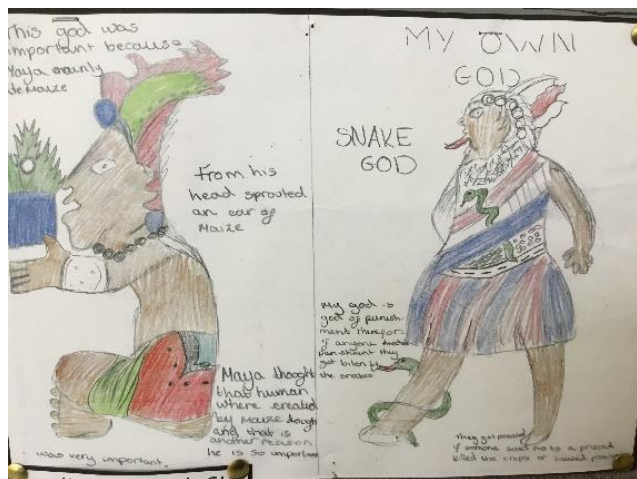 This god was
important because
Maya mainly
ate Maize
From his
head sprouted
an ear of
Maize
Maya thought
that human
where created
by Maize dough
and that is
another reason
he is so important
was very important.
MY OWN
GOD
SNAKE
GOD
My god is
god of punish
ment therefor
if anyone
punishment they
got biten by
the snakes
They got punished
if someone said no to a priest
killed the crops or caused